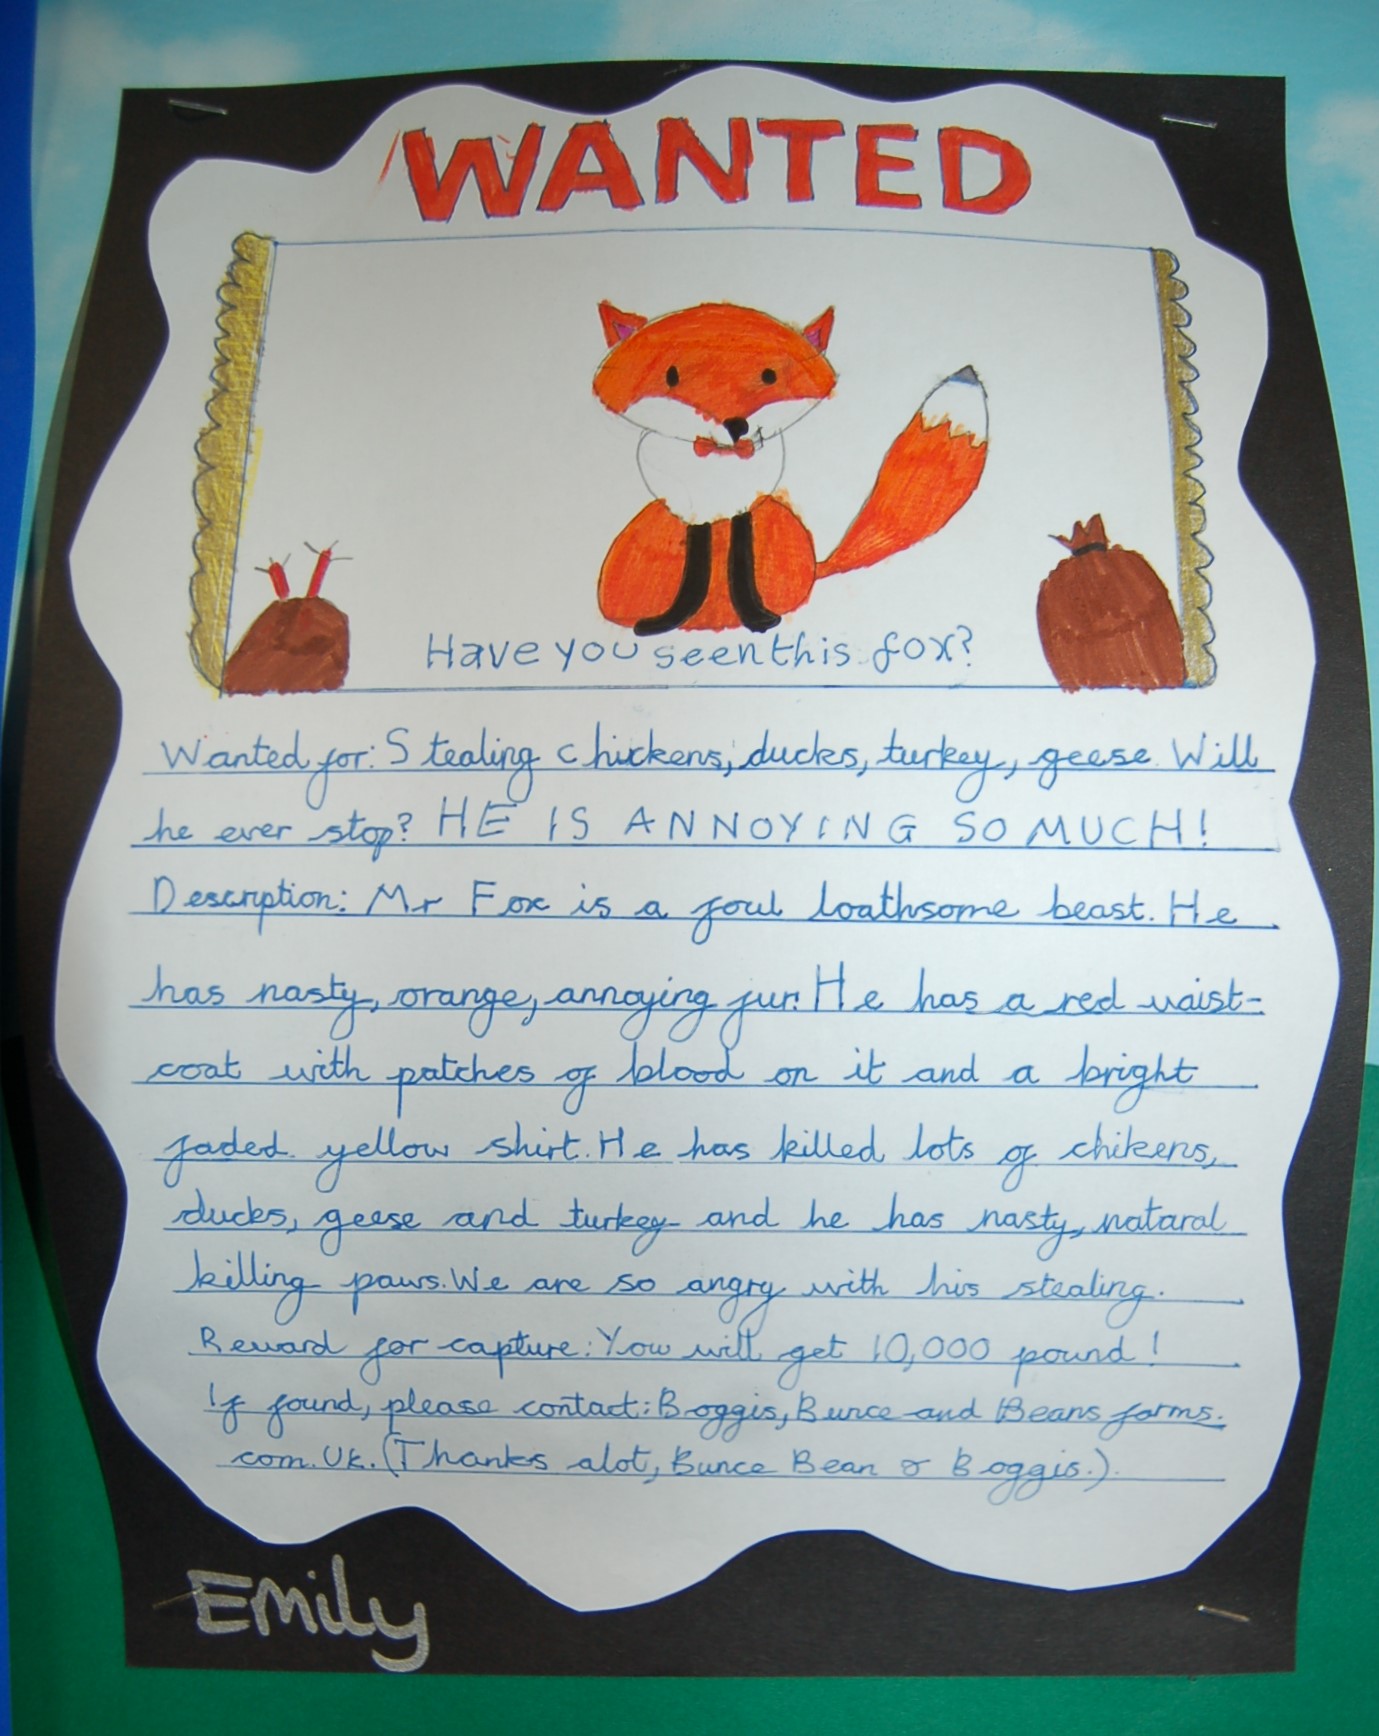 WANTED
Have you seen this fox?
Wanted for: Stealing chickens, ducks, turkey, geese. Will
he ever stop? HE IS ANNOYING SO MUCH!
Description: Mr Fox is a foul loathsome beast. He
has nasty, orange, annoying fur. He has a red waist-
coat with patches of blood on it and a bright
faded yellow shirt. He has killed lots of chikens,
ducks, geese and turkey and he has nasty, nataral
killing paws. We are so angry with his stealing.
Reward for capture: You will get 10,000 pound!
If found, please contact: Boggis, Bunce and Beans farms.
com.Uk. (Thanks alot, Bunce Bean & Boggis.).
EMily